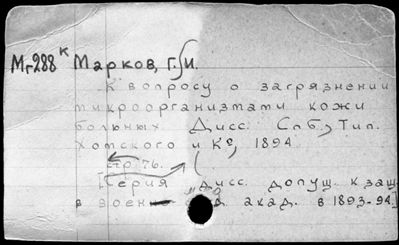 Мг288 к Марков, Г. И.
К вопросу о загрязнении
микроорганизмами кожи
больных. Дисс. Спб., Тип.
Хомского и Кº, 1894
стр. 76.
(Серия дисс. допущ. к защ.
в воен акад. в 1893-94.